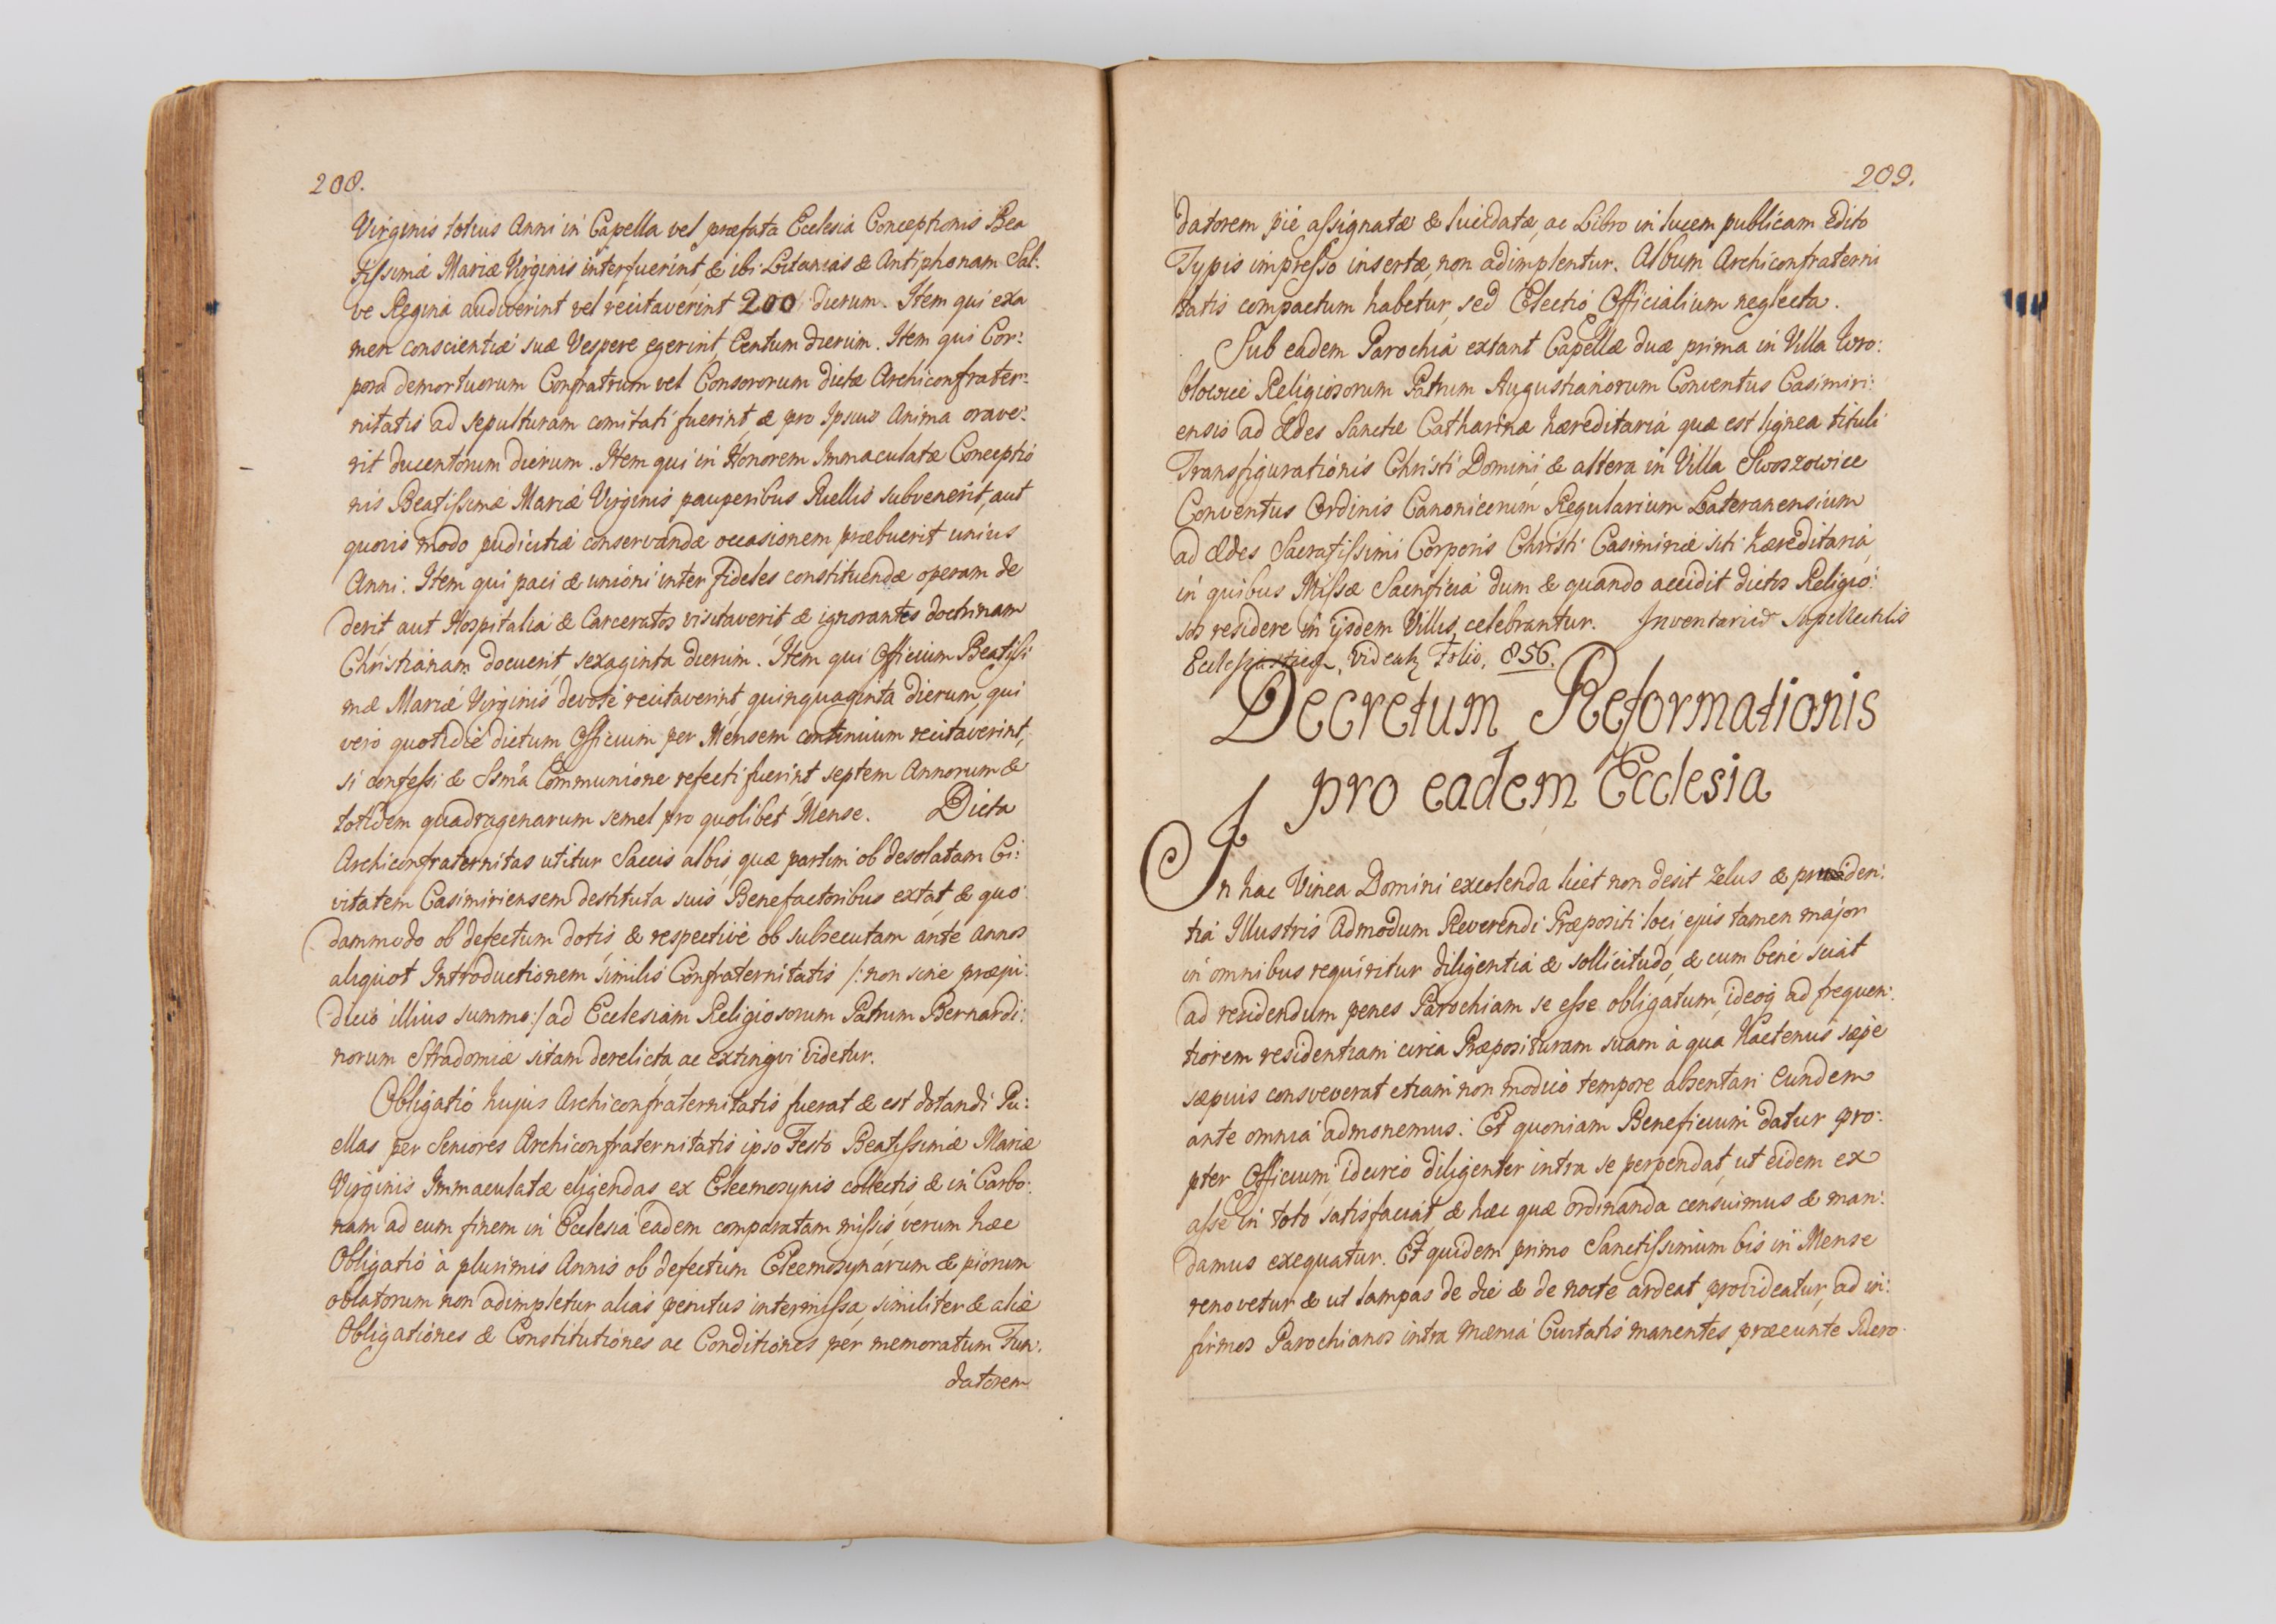 208.
Virginis totius Anni in Capella vel præfata Ecclesia Conceptionis Bea
tissimæ Mariæ Virginis interfuerint & ibi Litanias & Antiphonam Sal:
ve Regina audiverint vel recitaverint 200 dierum. Item qui exa
men conscientiæ suæ Vespere egerint, Centum dierum. Item qui Cor:
pora demortuorum Confratrum vel Consororum dictæ Archiconfrater:
nitatis ad sepulturam comitati fuerint & pro Ipsius Anima orave:
rit ducentorum dierum. Item qui in Honorem Immaculatæ Conceptio
nis Beatissimæ Mariæ Virginis pauperibus Puellis subvenerit, aut
quovis modo pudicitiæ conservandæ occasionem præbuerit unius
Anni: Item qui paci & unioni inter fideles constituendæ operam de
derit aut Hospitalia & Carceratos visitaverit & ignorantes doctrinam
Christianam docuerit, sexaginta dierum. Item qui Officium Beatissi
mæ Mariæ Virginis devote recitaverint, quinquaginta dierum, qui
vero quotidie dictum Officium per Mensem continuum recitaverint,
si confessi & Ssma Communione refecti fuerint septem Annorum &
totidem quadragenarum semel pro quolibet Mense. Dicta
Archiconfraternitas utitur Saccis albis, quæ partim ob desolatam Ci:
vitatem Casimiriensem destituta suis Benefactoribus extat, & quo
dammodo ob defectum dotis & respective ob subsecutam ante Annos
aliquot Introductionem similis Confraternitatis /: non sine præju:
dicio illius summo:/ ad Ecclesiam Religiosorum Patrum Bernardi:
norum Stradomiæ sitam derelicta ac extingvi videtur.
Obligatio hujus Archiconfraternitatis fuerat & est dotandi Pu:
ellas per Seniores Archiconfraternitatis ipso Festo Beatissimæ Mariæ
Virginis Immaculatæ eligendas ex Eleemosynis collectis, & in Carbo:
nam ad eum finem in Ecclesia eadem comparatam missis, verum hæc
Obligatio à plurimis Annis ob defectum Eleemosynarum & piorum
oblatorum non adimpletur alias penitus intermissa, similiter & aliæ
Obligationes & Constitutiones ac Conditiones per memoratum Fun:
datorem
209.
datorem pie assignatæ & lucidatæ, ac Libro in lucem publicam edito
Typis impresso insertæ, non adimplentur. Album Archiconfraterni
tatis compactum habetur, sed Electio Officialium neglecta.
Sub eadem Parochia extant Capellæ duæ prima in Villa Wro:
blowice Religiosorum Patrum Augustianorum Conventus Casimiri:
ensis ad Ædes Sanctæ Catharinæ hæreditaria quæ est lignea tituli
Transfigurationis Christi Domini, & altera in Villa Swoszowice
Conventus Ordinis Canonicorum Regularium Lateranensium
ad Ædes Sacratissimi Corporis Christi Casimiriæ siti hæreditaria,
in quibus Missæ Sacrificia dum & quando accidit dictos Religio:
sos residere in ijsdem Villis, celebrantur. Inventariū Supellectilis
Ecclesiasticæ, videatꝝ Folio, 856.
Decretum Reformationis
pro eadem Ecclesia
In hac Vinea Domini excolenda licet non desit zelus & pruden:
tia Illustris Admodum Reverendi Præpositi loci, ejus tamen major
in omnibus requiritur diligentia & sollicitudo, & cum bene sciat
ad residendum penes Parochiam se esse obligatum, ideoq ad frequen:
tiorem residentiam circa Præposituram suam à qua hactenus sæpe
sæpius consveverat etiam non modico tempore absentari Eundem
ante omnia admonemus: Et quoniam Beneficium datur pro:
pter Officium, idcirco diligenter intra se perpendat, ut eidem ex
asse in toto satisfaciat, & hæc quæ ordinanda censuimus & man:
damus exequatur. Et quidem primo Sanctissimum bis in Mense
renovetur & ut lampas de die & de nocte ardeat provideatur, ad in:
firmos Parochianos intra mænia Civitatis manentes præeunte Puero